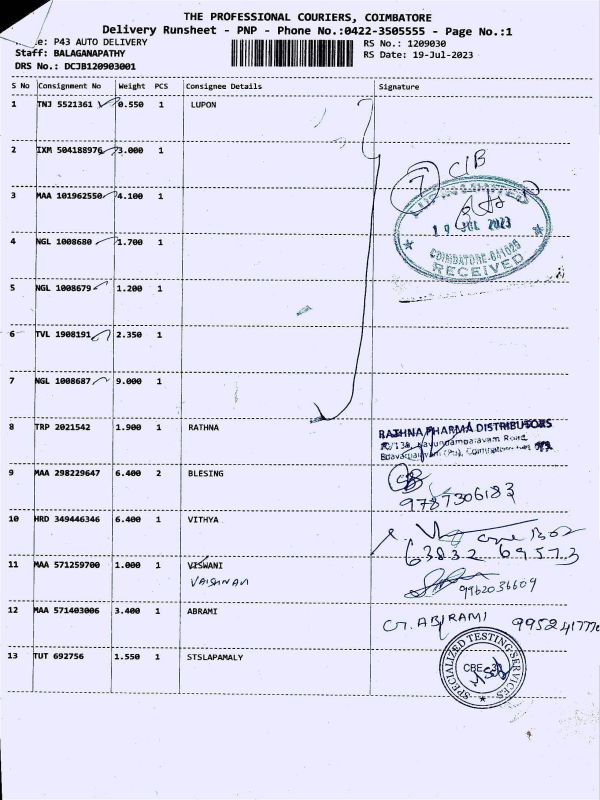 THE PROFESSIONAL COURIERS, COIMBATORE
Delivery Runsheet - PNP - Phone No.:0422-3505555 - Page No.:1
e: P43 AUTO DELIVERY RS No.: 1209030
Staff: BALAGANAPATHY RS Date: 19-Jul-2023
DRS No.: DCJB120903001
S No Consignment No Weight PCS Consignee Details Signature
1 TNJ 5521361 0.550 1 LUPON
2 IXM 504188976 3.000 1
7 CIB
3 MAA 101962550 4.100 1
LUPIN LIMITED
19 JUL 2023
COIMBATORE-641026
RECEIVED
4 NGL 1008680 1.700 1
5 NGL 1008679 1.200 1
6 TVL 1908191 2.350 1
7 NGL 1008687 9.000 1
8 TRP 2021542 1.900 1 RATHNA
RATHNA PHARMA DISTRIBUTORS
9 MAA 298229647 6.400 2 BLESING
9787306183
10 HRD 349446346 6.400 1 VITHYA
one Box
63832 69573
11 MAA 571259700 1.000 1 VISWANI
VAISHNAVI
9962036609
12 MAA 571403006 3.400 1 ABRAMI
G. ABIRAMI 9952417770
13 TUT 692756 1.550 1 STSLAPAMALY
SPECIALIZED TESTING SERVICES
CBE